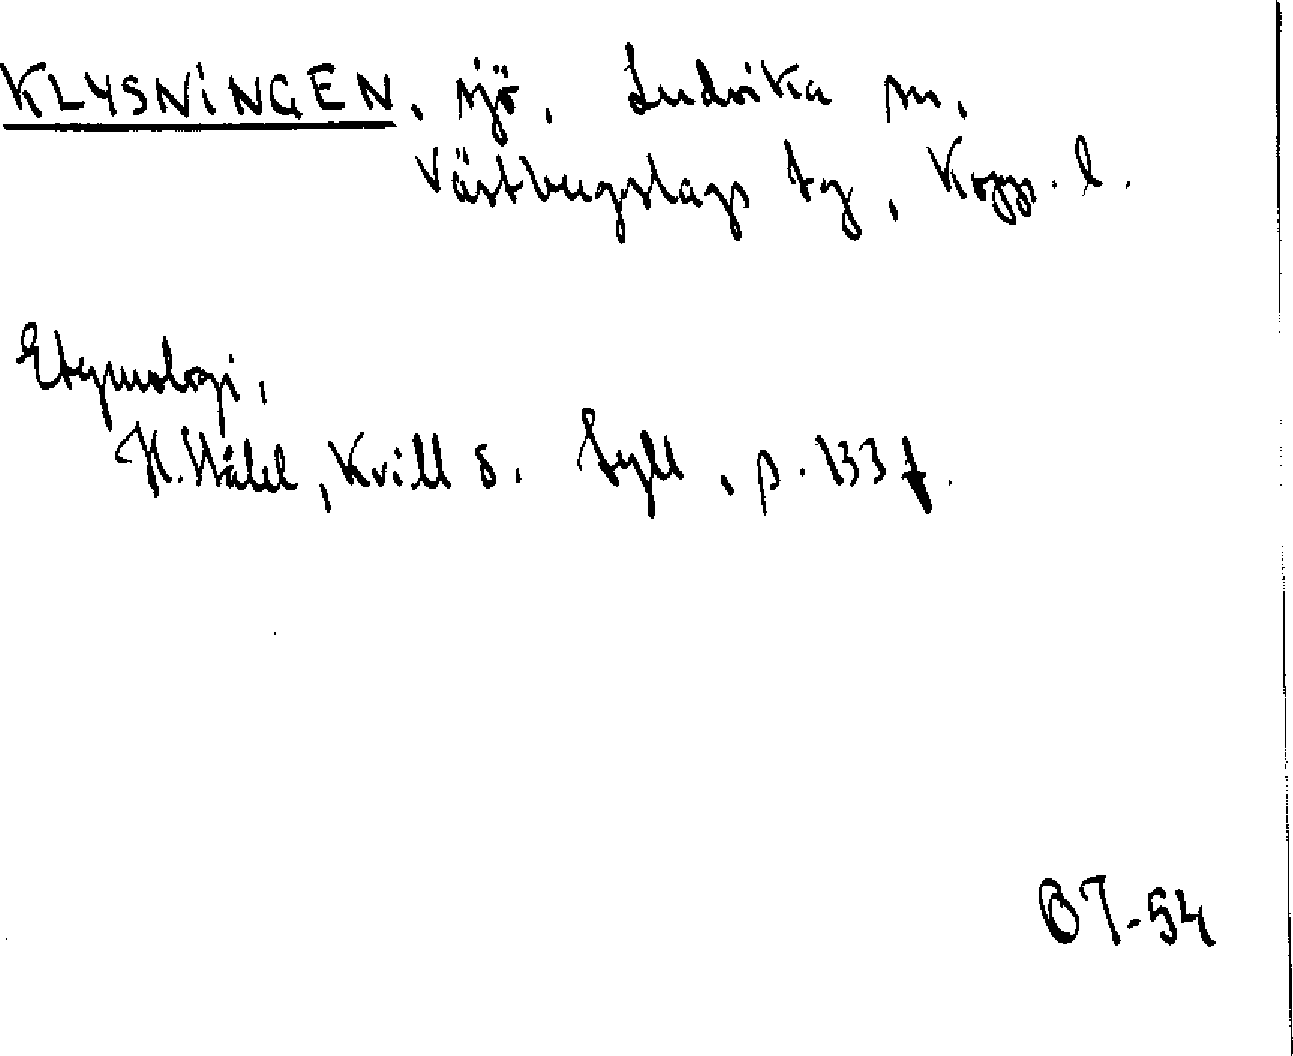 KLYSNINGEN, sjö, Ludvika sn,
Västbergslags tg, Kopp. l.
Etymologi,
H. Ståhl, Kvill o. Tyll, p. 133 f.
OT-54